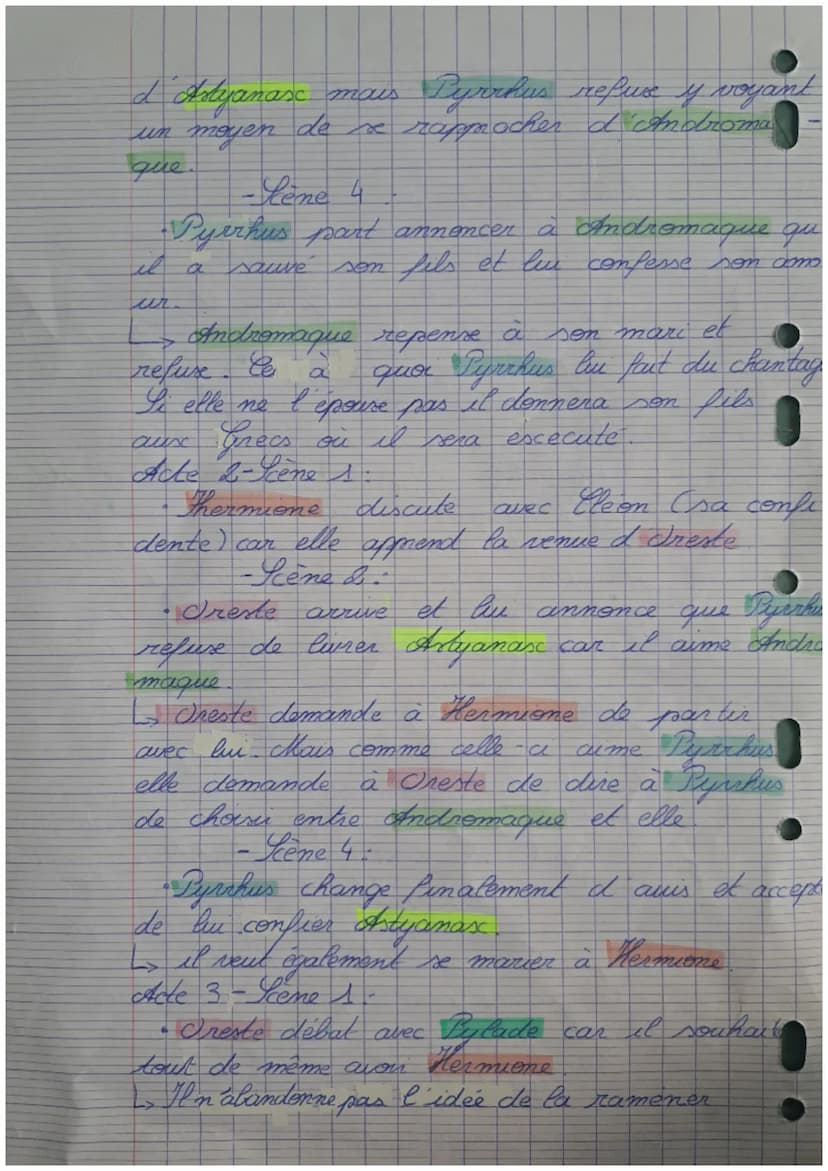 d'Astyanax mais Pyrrhus refuse y voyant
un moyen de se rapprocher d'Androma-
que.
- Scène 4 :
• Pyrrhus part annoncer à Andromaque qu
il a sauvé son fils et lui confesse son amo
ur.
↳ Andromaque repense à son mari et
refuse. Ce à quoi Pyrrhus lui fait du chantag
Si elle ne l'épouse pas il donnera son fils
aux Grecs où il sera escecuté.
Acte 2 - Scène 1 :
• Hermione discute avec Cleon (sa confi
dente) car elle apprend la venue d'Oreste
- Scène 2 :
• Oreste arrive et lui annonce que Pyrrhu
refuse de livrer Astyanax car il aime Andro
maque.
↳ Oreste demande à Hermione de partir
avec lui. Mais comme celle-ci aime Pyrrhus
elle demande à Oreste de dire à Pyrrhus
de choisir entre Andromaque et elle.
- Scène 4 :
• Pyrrhus change finalement d'avis et accept
de lui confier Astyanax.
↳ il veut également se marier à Hermione.
Acte 3 - Scène 1 :
• Oreste débat avec Pylade car il souhait
tout de même avoir Hermione.
↳ Il n'abandonne pas l'idée de la ramener